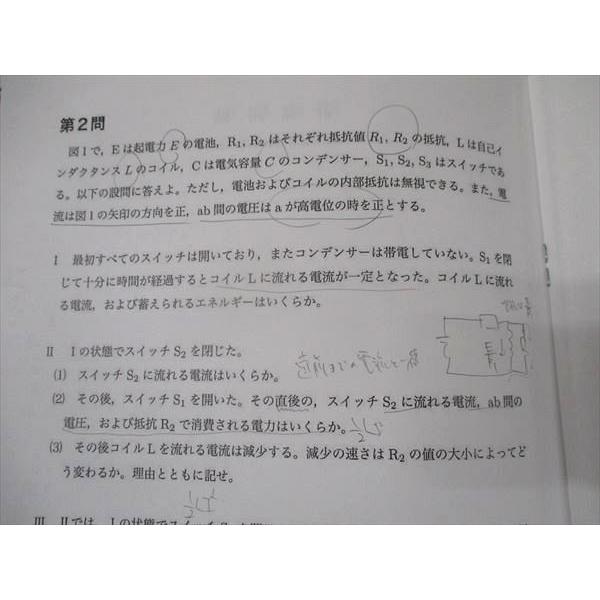 第2問
図1で，Eは起電力Eの電池，R₁, R₂はそれぞれ抵抗値R₁, R₂の抵抗，Lは自己イ
ンダクタンスLのコイル，Cは電気容量Cのコンデンサー，S₁, S₂, S₃はスイッチであ
る。以下の設問に答えよ。ただし，電池およびコイルの内部抵抗は無視できる。また，電
流は図1の矢印の方向を正，ab間の電圧はaが高電位の時を正とする。
I 最初すべてのスイッチは開いており，またコンデンサーは帯電していない。S₁を閉
じて十分に時間が経過するとコイルLに流れる電流が一定となった。コイルLに流れ
る電流，および蓄えられるエネルギーはいくらか。
II Iの状態でスイッチS₂を閉じた。
(1) スイッチS₂に流れる電流はいくらか。
(2) その後，スイッチS₁を開いた。その直後の，スイッチS₂に流れる電流，ab間の
電圧，および抵抗R₂で消費される電力はいくらか。
(3) その後コイルLを流れる電流は減少する。減少の速さはR₂の値の大小によってど
う変わるか。理由とともに記せ。